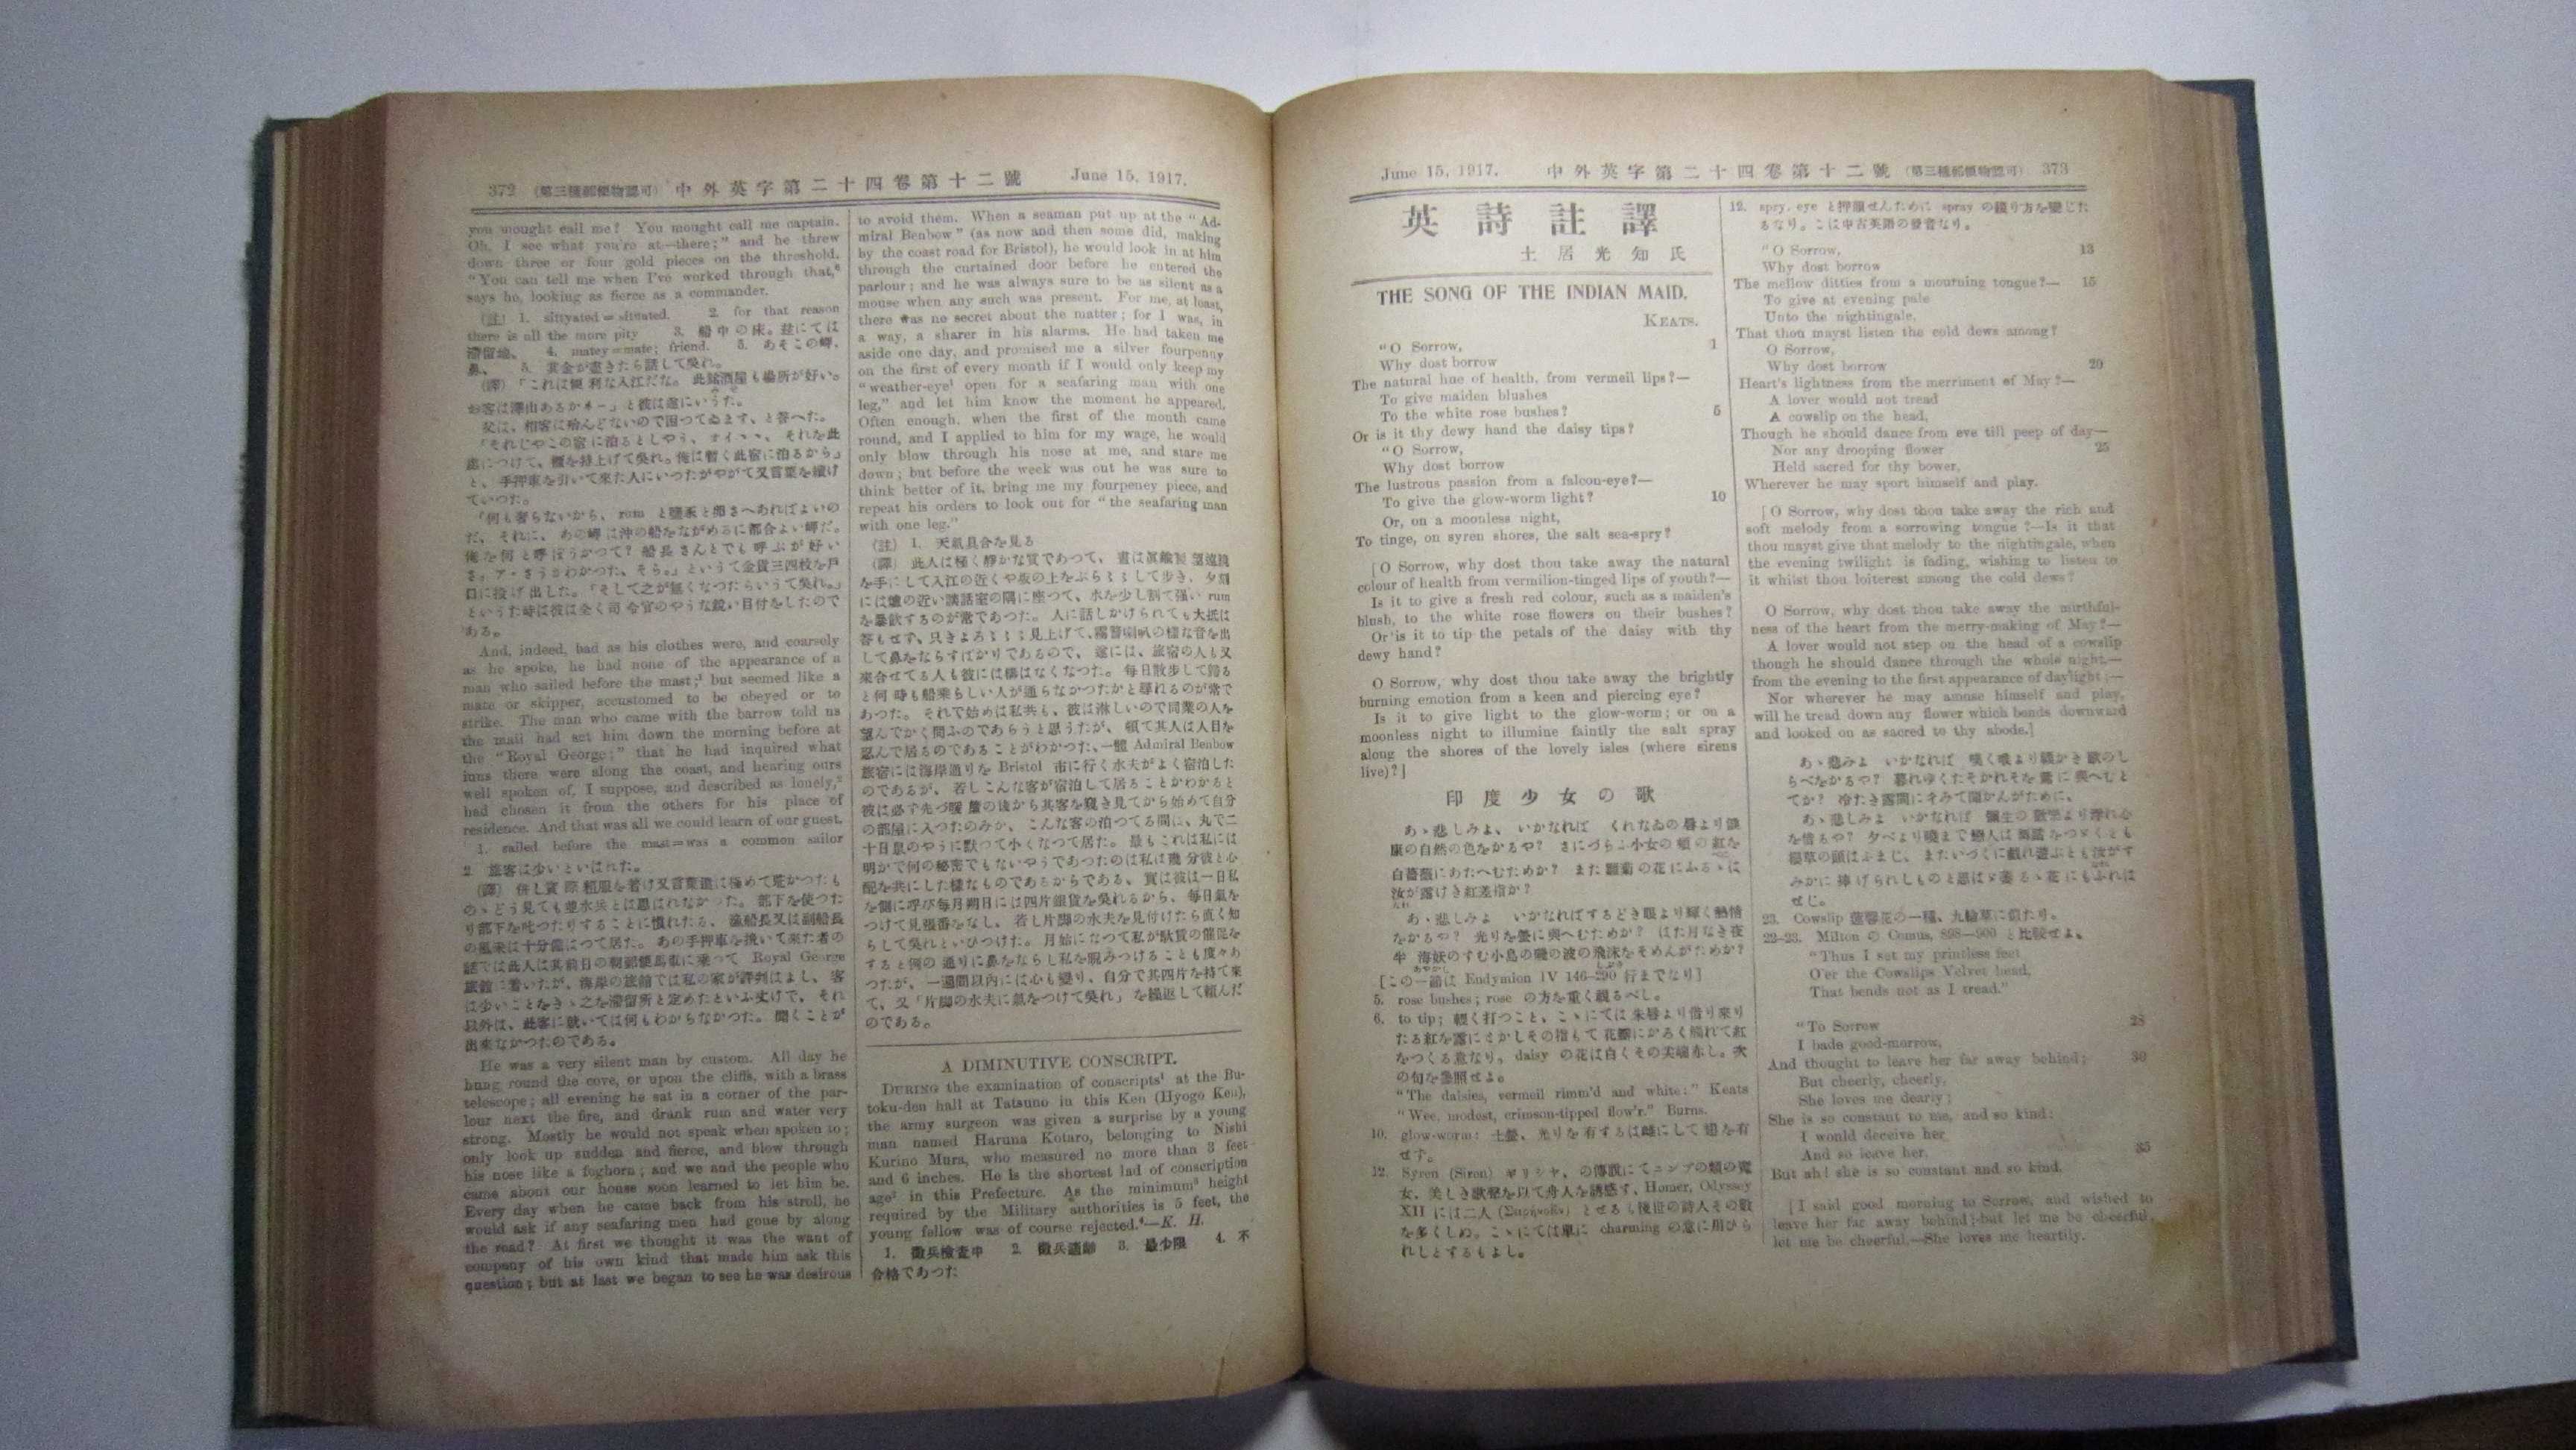 372 (第三種郵便物認可) 中外英字第二十四卷第十二號 June 15, 1917.
you mought call me? You mought call me captain.
Oh, I see what you're at—there;" and he threw
down three or four gold pieces on the threshold.
"You can tell me when I've worked through that,⁶
says he, looking as fierce as a commander.
(註) 1. sittyated = situated. 2. for that reason
there is all the more pity 3. 船中の床。茲にては
滯留地、 4. matey = mate; friend. 5. あそこの岬、
鼻、 5. 其金が盡きたら話して吳れ。
(譯)「これは便利な入江だな。此銘酒屋も塲所が好い。
お客は澤山あるかネー」と彼は遂にいうた。
父は、相客は殆んどないので困つてゐます、と答へた。
「それじやこの宿に泊るとしやう、オイヽヽ、それを此
處につけて、櫃を持上げて吳れ。俺は暫く此宿に泊るから」
と、手押車を引いて來た人にいつたがやがて又言葉を續け
ていつた。
「何も奢らないから、rum と鹽豕と卵さへあればよいの
だ、それに、あの岬は沖の船をながめるに都合よい岬だ。
俺を何と呼ぼうかつて? 船長さんとでも呼ぶが好い
さ。ア・さうさわかつた、そら。」というて金貨三四枚を戶
口に投げ出した。「そして之が無くなつたらいうて吳れ。」
というた時は彼は全く司令官のやうな銳い目付をしたので
ある。
And, indeed, bad as his clothes were, and coarsely
as he spoke, he had none of the appearance of a
man who sailed before the mast;¹ but seemed like a
mate or skipper, accustomed to be obeyed or to
strike. The man who came with the barrow told us
the mail had set him down the morning before at
the "Royal George;" that he had inquired what
inns there were along the coast, and hearing ours
well spoken of, I suppose, and described as lonely,²
had chosen it from the others for his place of
residence. And that was all we could learn of our guest.
1. sailed before the mast = was a common sailor
2. 旅客は少いといはれた。
(譯) 併し實際粗服を着け又言葉遣は極めて荒かつたも
のゝどう見ても並水兵とは思はれなかつた。部下を使つた
り部下を叱つたりすることに慣れたる、漁船長又は副船長
の風釆は十分備はつて居た。あの手押車を挽いて來た者の
話では此人は其前日の朝郵便馬車に乘つて Royal George
旅館に着いたが、海岸の旅館では私の家が評判はよし、客
は少いことをきゝ之を滯留所と定めたといふ丈けで、それ
以外は、此客に就いては何もわからなかつた。聞くことが
出來なかつたのである。
He was a very silent man by custom. All day he
hung round the cove, or upon the cliffs, with a brass
telescope; all evening he sat in a corner of the par-
lour next the fire, and drank rum and water very
strong. Mostly he would not speak when spoken to;
only look up sudden and fierce, and blow through
his nose like a foghorn; and we and the people who
came about our house soon learned to let him be.
Every day when he came back from his stroll, he
would ask if any seafaring men had gone by along
the road? At first we thought it was the want of
company of his own kind that made him ask this
question; but at last we began to see he was desirous
to avoid them. When a seaman put up at the "Ad-
miral Benbow" (as now and then some did, making
by the coast road for Bristol), he would look in at him
through the curtained door before he entered the
parlour; and he was always sure to be as silent as a
mouse when any such was present. For me, at least,
there was no secret about the matter; for I was, in
a way, a sharer in his alarms. He had taken me
aside one day, and promised me a silver fourpenny
on the first of every month if I would only keep my
"weather-eye¹ open for a seafaring man with one
leg," and let him know the moment he appeared.
Often enough, when the first of the month came
round, and I applied to him for my wage, he would
only blow through his nose at me, and stare me
down; but before the week was out he was sure to
think better of it, bring me my fourpeney piece, and
repeat his orders to look out for "the seafaring man
with one leg."
(註) 1. 天氣具合を見る
(譯) 此人は極く靜かな質であつて、晝は眞鍮製望遠鏡
を手にして入江の近くや坂の上をぶらヾして步き、夕刻
には爐の近い談話室の隅に座つて、水を少し割て强い rum
を暴飮するのが常であつた。人に話しかけられても大抵は
答もせず、只きよろヾ見上げて、霧警喇叭の樣な音を出
して鼻をならすばかりであるので、遂には、旅宿の人も又
來合せてる人も彼には構はなくなつた。每日散步して歸る
と何時も船乘らしい人が通らなかつたかと尋れるのが常で
あつた。それで始めは私共も、彼は淋しいので同業の人を
望んでかく問ふのであらうと思うたが、頓て其人は人目を
忍んで居るのであることがわかつた、一體 Admiral Benbow
旅宿には海岸通りを Bristol 市に行く水夫がよく宿泊した
のであるが、若しこんな客が宿泊して居ることがわかると
彼は必す先づ暖簾の後から其客を窺き見てから始めて自分
の部屋に入つたのみか、こんな客の泊つてる間は、丸で二
十日鼠のやうに默つて小くなつて居た。最もこれは私には
明かで何の秘密でもないやうであつたのは私は幾分彼と心
配を共にした樣なものであるからである、實は彼は一日私
を側に呼び每月朔日には四片銀貨を吳れるから、每日氣を
つけて見張番をなし、若し片脚の水夫を見付けたら直く知
らして吳れといひつけた。月始になつて私が駄賃の催促を
すると例の通りに鼻をならし私を睨みつけることも度々あ
つたが、一週間以內には心も變り、自分で其四片を持て來
て、又「片脚の水夫に氣をつけて吳れ」を繰返して賴んだ
のである。
A DIMINUTIVE CONSCRIPT.
DURING the examination of conscripts¹ at the Bu-
toku-den hall at Tatsuno in this Ken (Hyogo Ken),
the army surgeon was given a surprise by a young
man named Haruna Kotaro, belonging to Nishi
Kurino Mura, who measured no more than 3 feet
and 6 inches. He is the shortest lad of conscription
age² in this Prefecture. As the minimum³ height
required by the Military authorities is 5 feet, the
young fellow was of course rejected.⁴—K. H.
1. 徵兵檢査中 2. 徵兵適齡 3. 最少限 4. 不
合格であつた
June 15, 1917. 中外英字第二十四卷第十二號 (第三種郵便物認可) 373
英詩註譯
土居光知氏
THE SONG OF THE INDIAN MAID.
KEATS.
"O Sorrow, 1
Why dost borrow
The natural hue of health, from vermeil lips?—
To give maiden blushes
To the white rose bushes? 5
Or is it thy dewy hand the daisy tips?
"O Sorrow,
Why dost borrow
The lustrous passion from a falcon-eye?—
To give the glow-worm light? 10
Or, on a moonless night,
To tinge, on syren shores, the salt sea-spry?
[O Sorrow, why dost thou take away the natural
colour of health from vermilion-tinged lips of youth?—
Is it to give a fresh red colour, such as a maiden's
blush, to the white rose flowers on their bushes?
Or is it to tip the petals of the daisy with thy
dewy hand?
O Sorrow, why dost thou take away the brightly
burning emotion from a keen and piercing eye?
Is it to give light to the glow-worm; or on a
moonless night to illumine faintly the salt spray
along the shores of the lovely isles (where sirens
live)?]
印度少女の歌
あゝ悲しみよ、いかなれば くれなゐの唇より健
康の自然の色をかるや? さにづらふ小女の頰の紅を
白薔薇にあたへむためか? また雛菊の花にふるゝは
汝が露けき紅差指か?
あゝ悲しみよ いかなればするどき眼より輝く熱情
をかるや? 光りを螢に與へむためか? はた月なき夜
半 海妖のすむ小島の磯の波の飛沫をそめんがためか?
[この一節は Endymion IV 146-290 行までなり]
5. rose bushes; rose の方を重く讀るべし。
6. to tip; 輕く打つこと、こゝにては朱唇より借り來り
たる紅を露にとかしその指もて花瓣にかろく觸れて紅
をつくる意なり。daisy の花は白くその尖端赤し。次
の句を參照せよ。
"The daisies, vermeil rimm'd and white:" Keats
"Wee, modest, crimson-tipped flow'r." Burns.
10. glow-worm: 土螢、光りを有するは雌にして翅を有
せず。
12. Syren (Siren) ギリシヤ、の傳說にてニンフの類の魔
女、美しき歌聲を以て舟人を誘惑す、Homer, Odyssey
XII には二人 (Σειρήνοιϊν) とせるも後世の詩人その數
を多くしぬ。こゝにては單に charming の意に用ひら
れしとするもよし。
12. spry, eye と押韻せんために spray の綴り方を變じた
るなり。こは中古英語の發音なり。
"O Sorrow, 13
Why dost borrow
The mellow ditties from a mourning tongue?— 15
To give at evening pale
Unto the nightingale,
That thou mayst listen the cold dews among?
O Sorrow,
Why dost borrow 20
Heart's lightness from the merriment of May?—
A lover would not tread
A cowslip on the head,
Though he should dance from eve till peep of day—
Nor any drooping flower 25
Held sacred for thy bower,
Wherever he may sport himself and play.
[O Sorrow, why dost thou take away the rich and
soft melody from a sorrowing tongue?—Is it that
thou mayst give that melody to the nightingale, when
the evening twilight is fading, wishing to listen to
it whilst thou loiterest among the cold dews?
O Sorrow, why dost thou take away the mirthful-
ness of the heart from the merry-making of May?—
A lover would not step on the head of a cowslip
though he should dance through the whole night,—
from the evening to the first appearance of daylight;—
Nor wherever he may amuse himself and play,
will he tread down any flower which bends downward
and looked on as sacred to thy abode.]
あゝ悲みよ いかなれば 嘆く喉より緩かき歌のし
らべをかるや? 暮れゆくたそがれそを鶯に與へむと
てか? 冷たき露間にそみて聞かんがために、
あゝ悲しみよ いかなれば 彌生の歡樂より浮れ心
を借るや? 夕べより曉まで戀人は舞踏をつゞくとも
櫻草の頭はふまじ、またいづくに戲れ遊ぶとも汝がす
みかに捧げられしものと思はゞ萎るゝ花にもふれは
せじ。
23. Cowslip 蓮馨花の一種、九輪草に似たり。
22-23. Milton の Comus, 898-900 と比較せよ。
"Thus I set my printless feet
O'er the Cowslips Velvet head,
That bends not as I tread."
"To Sorrow 28
I bade good-morrow,
And thought to leave her far away behind; 30
But cheerly, cheerly,
She loves me dearly;
She is so constant to me, and so kind:
I would deceive her
And so leave her, 35
But ah! she is so constant and so kind.
[I said good morning to Sorrow, and wished to
leave her far away behind;-but let me be cheerful,
let me be cheerful,—She loves me heartily.